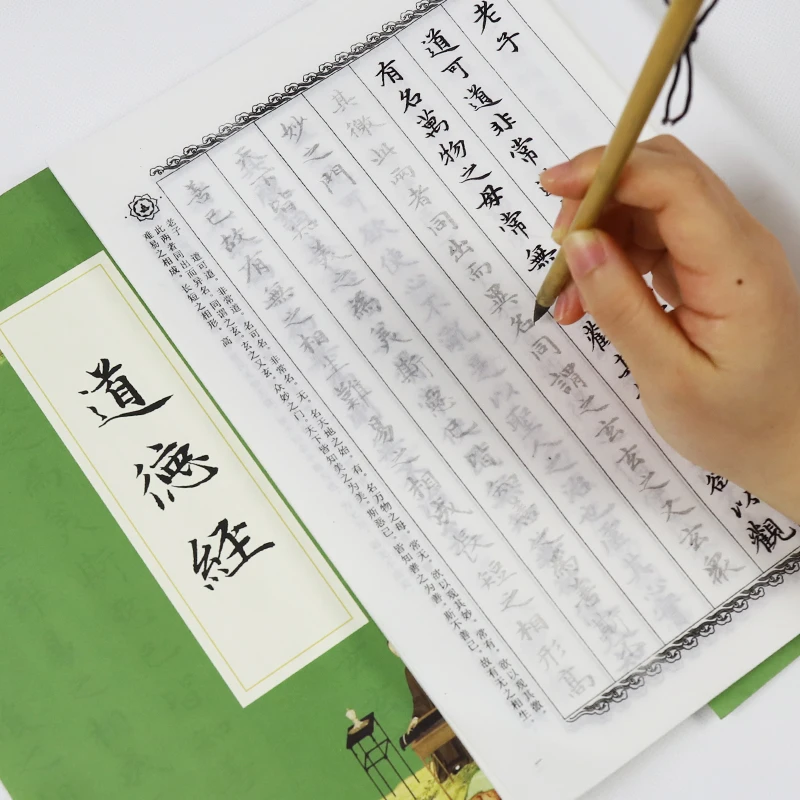 老子
道可道非常
有名萬物之母常無
觀
以觀
其徼此兩者同出而異名同謂之玄玄之又玄眾
妙之門
天下皆知美之為美斯惡已皆知善之為善斯不
善已故有無之相生難易之相成長短之相形高
老子
道可道，非常道。名可名，非常名。无，名天地之始。有，名万物之母。常无，欲以观其妙。常有，欲以观其徼。
此两者同出而异名，同谓之玄。玄之又玄，众妙之门。天下皆知美之为美，斯恶已。皆知善之为善，斯不善已。故有无之相生，
难易之相成，长短之相形，高
道德經